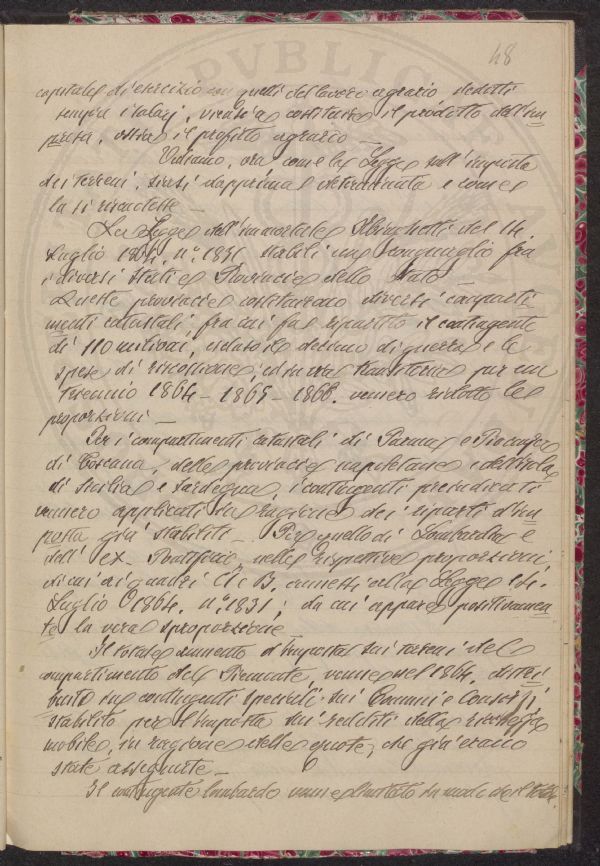 48
capitale di esercizio con quelli del lavoro agrario dedotti
sempre i salarj, viensi a costituire il prodotto dell'im
presa, ossia il profitto agrario —
Vediamo, ora come la Legge sull'imposta
dei terreni, siasi dapprima determinata e come
la si riscuotesse —
La Legge dell'immortale Minghetti del 14.
Luglio 1864, n.° 1831 stabilì un conguaglio fra
i diversi Stati e Provincie dello Stato
Queste provincie costituirono diversi comparti
menti catastali, fra cui fu ripartito il contingente
di 110 milioni, escluso il decimo di guerra e le
spese di riscossione; ed in via transitoria per un
triennio 1864 – 1865 – 1866. vennero ridotte le
proporzioni —
Per i compartimenti catastali di Parma e Piacenza
di Toscana, delle provincie napoletane e dell'isola
di Sicilia e Sardegna, i contingenti preindicati
vennero applicati in ragione dei riparti d'im
posta già stabiliti — Per quello di Lombardia e
dell' ex- Pontificie nelle rispettive proporzioni
di cui ai quadri A e B. annessi alla Legge 14.
Luglio 1864. n.° 1831; da cui appare positivamen
te la vera sproporzione
Il totale aumento d'imposta sui terreni del
compartimento del Piemonte, venne nel 1864, distri
buito in contingenti speciali sui Comuni e Consorzj
stabilito per l'imposta sui redditi della ricchezza
mobile, in ragione delle quote, che già erano
state assegnate —
Il contingente lombardo venne limitato in modo che il